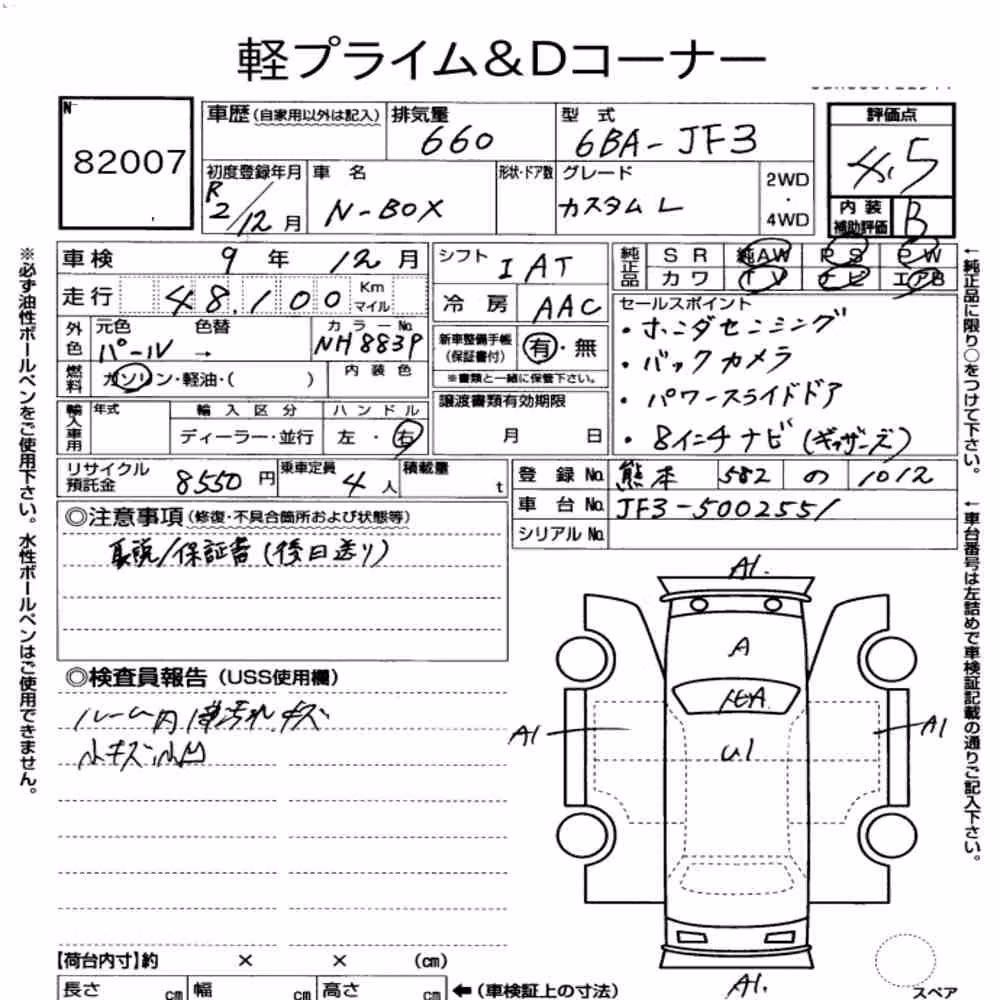 軽プライム&Dコーナー
N
82007
車歴(自家用以外は記入)
排気量
660
型 式
6BA-JF3
評価点
4.5
初度登録年月
R2/12月
車 名
N-BOX
形状・ドア数
グレード
カスタム L
2WD
・
4WD
内 装
補助評価
B
車検 9 年 12 月
走行 48,100 Km
マイル
外色
元色 パール
色替 →
カラーNo. NH883P
燃料
ガソリン・軽油・( )
内 装 色
輸入車用
年式
輸 入 区 分
ディーラー・並行
ハ ン ド ル
左 ・ 右
シフト I AT
冷 房 AAC
新車整備手帳
(保証書付)
有・無
※書類と一緒に保管下さい。
譲渡書類有効期限
月 日
純正品
S R 純AW P S P W
カ ワ T V ナ ビ エアB
セールスポイント
・ホンダセンシング
・バックカメラ
・パワースライドドア
・8インチナビ(ギャザーズ)
リサイクル
預託金
8550 円
乗車定員
4 人
積載量
t
登 録 No. 熊本 582 の 1012
車 台 No. JF3-5002551
シリアル No.
◎注意事項(修復・不具合箇所および状態等)
取説/保証書(後日送り)
◎検査員報告(USS使用欄)
ルーム内 薄汚れ キズ
小キズ・小凹
A1.
A
A1
A1
U1
A1.
スペア
【荷台内寸】約 × × (cm)
長さ cm 幅 cm 高さ cm
←(車検証上の寸法)
※必ず油性ボールペンをご使用下さい。水性ボールペンはご使用できません。
←純正品に限り○をつけて下さい。
←車台番号は左詰めで車検証記載の通りご記入下さい。